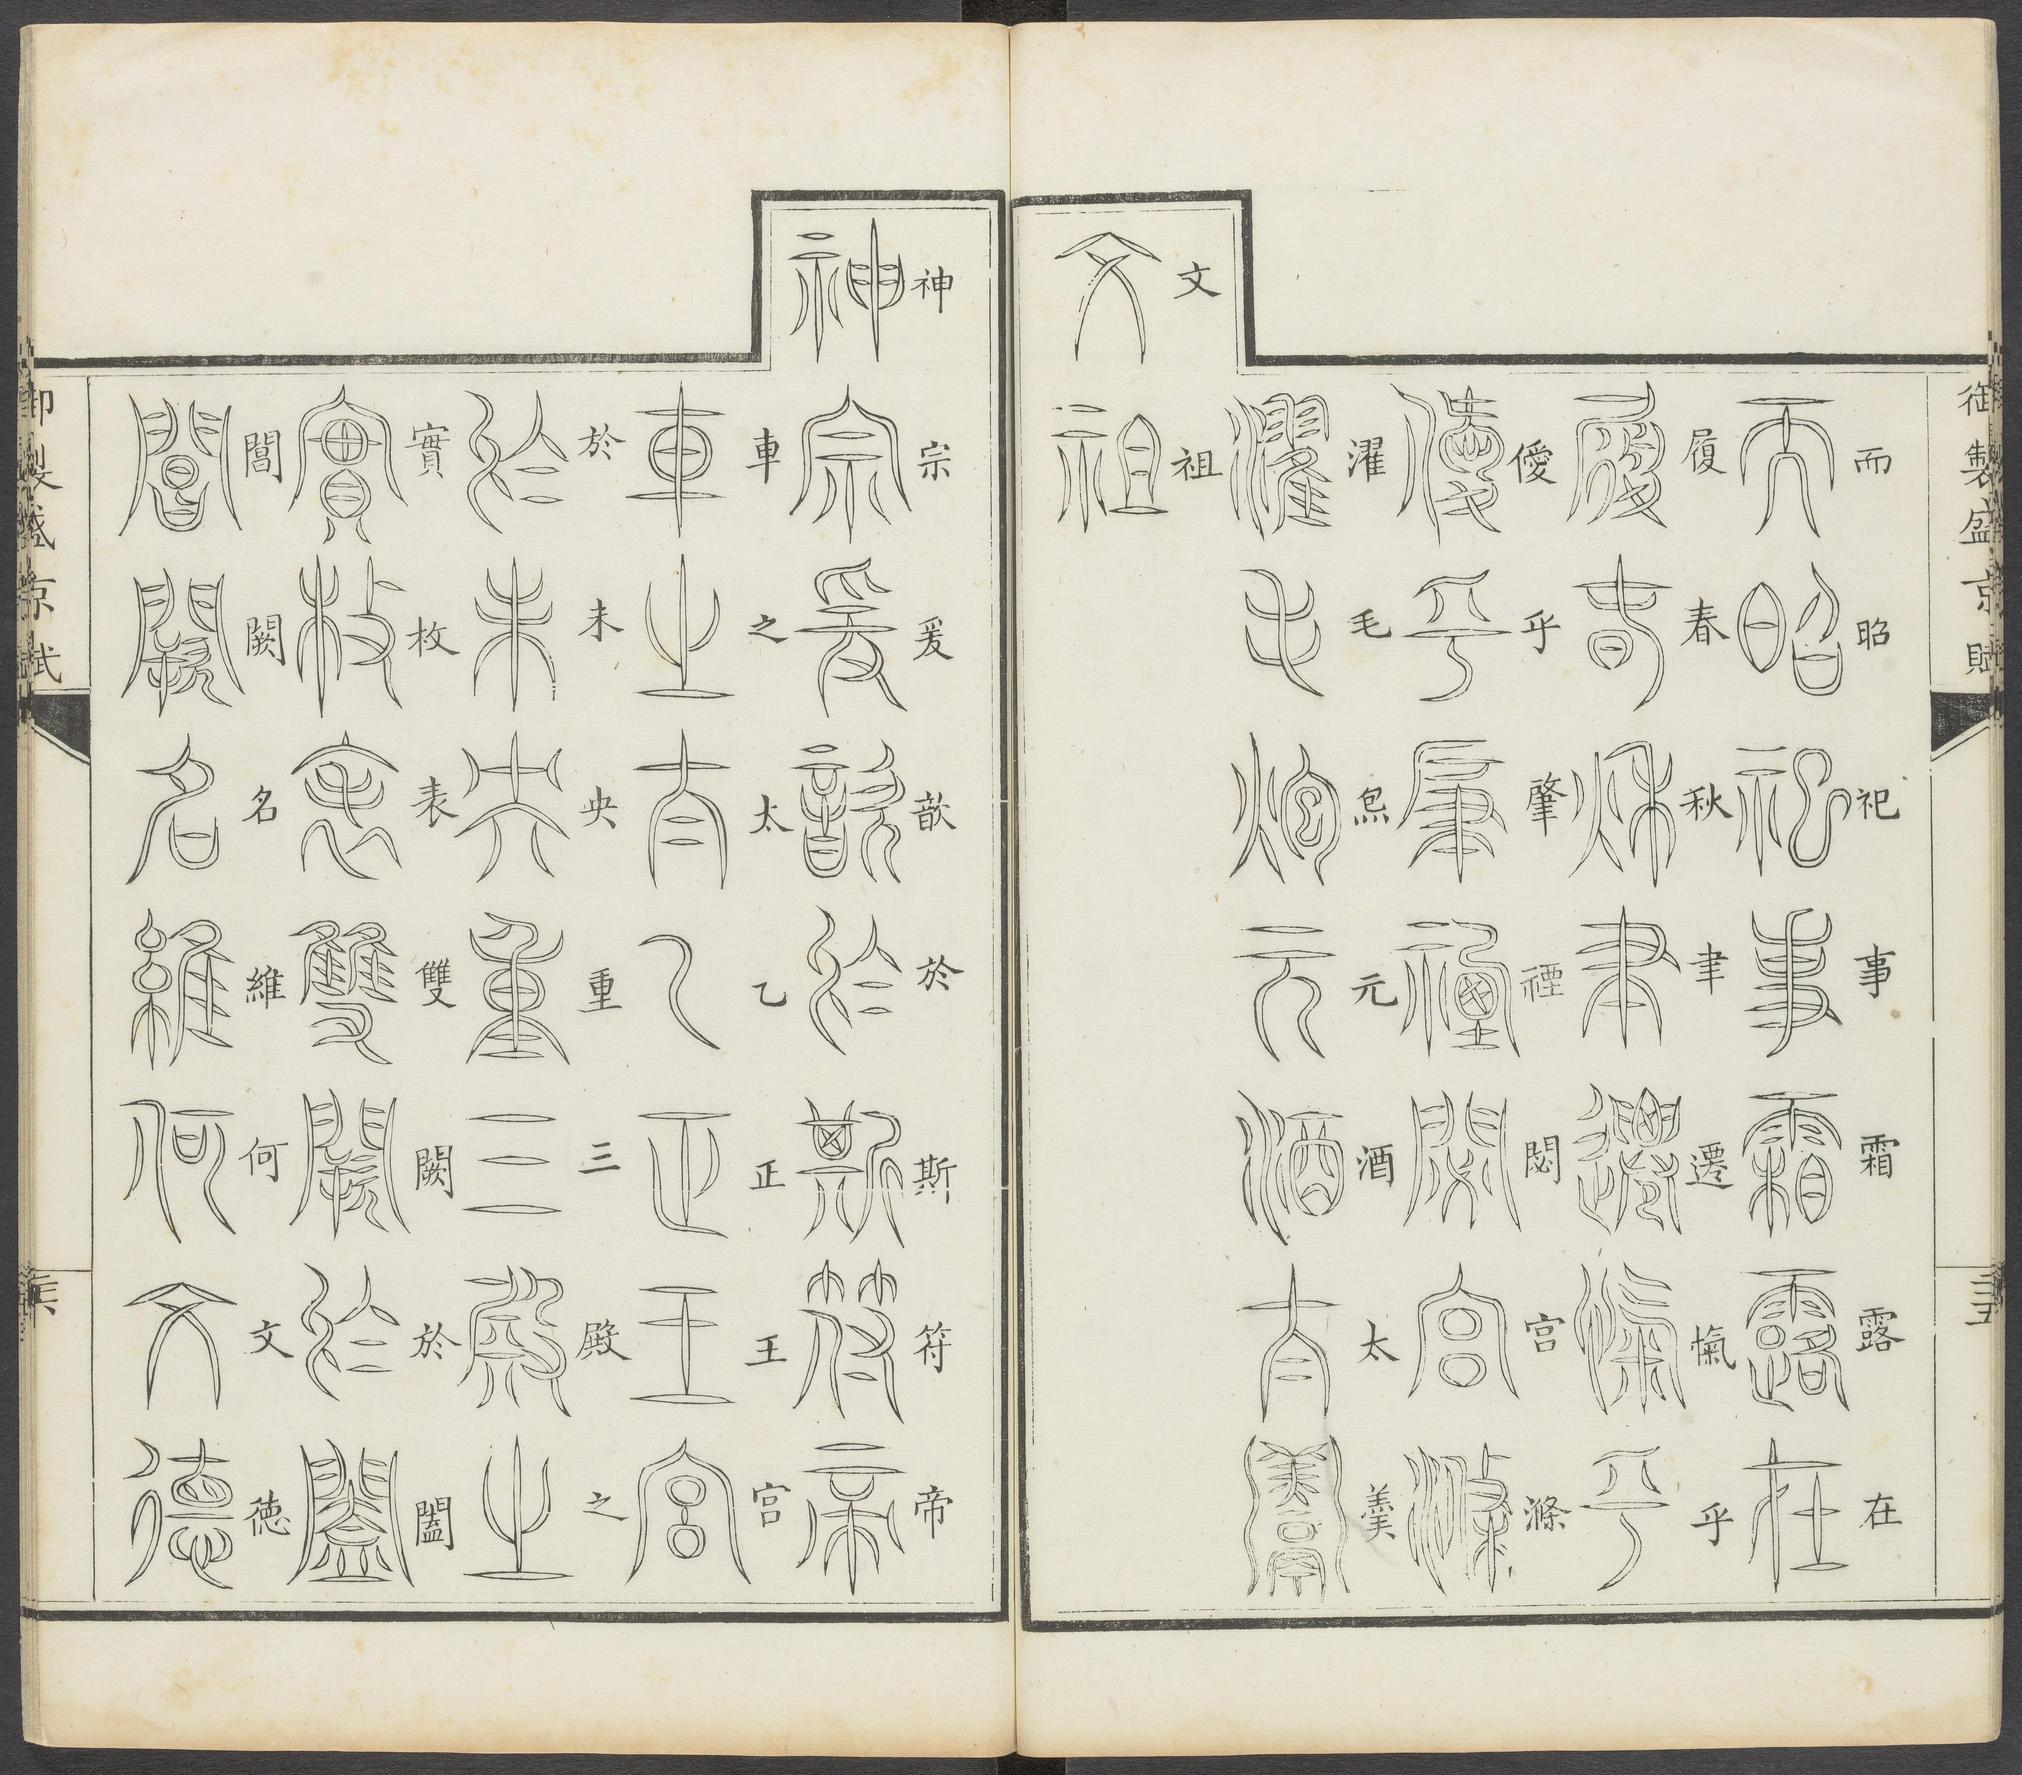 御製盛京賦
三五
而昭祀事霜露在
履春秋聿遷愾乎
僾乎肇禋閟宮滌
濯毛炰元酒太羹
文祖
神宗爰歆於斯符帝
車之太乙正王宮
於未央重三殿之
實枚表雙闕於闔
閶闕名維何文德
御製盛京賦
三六